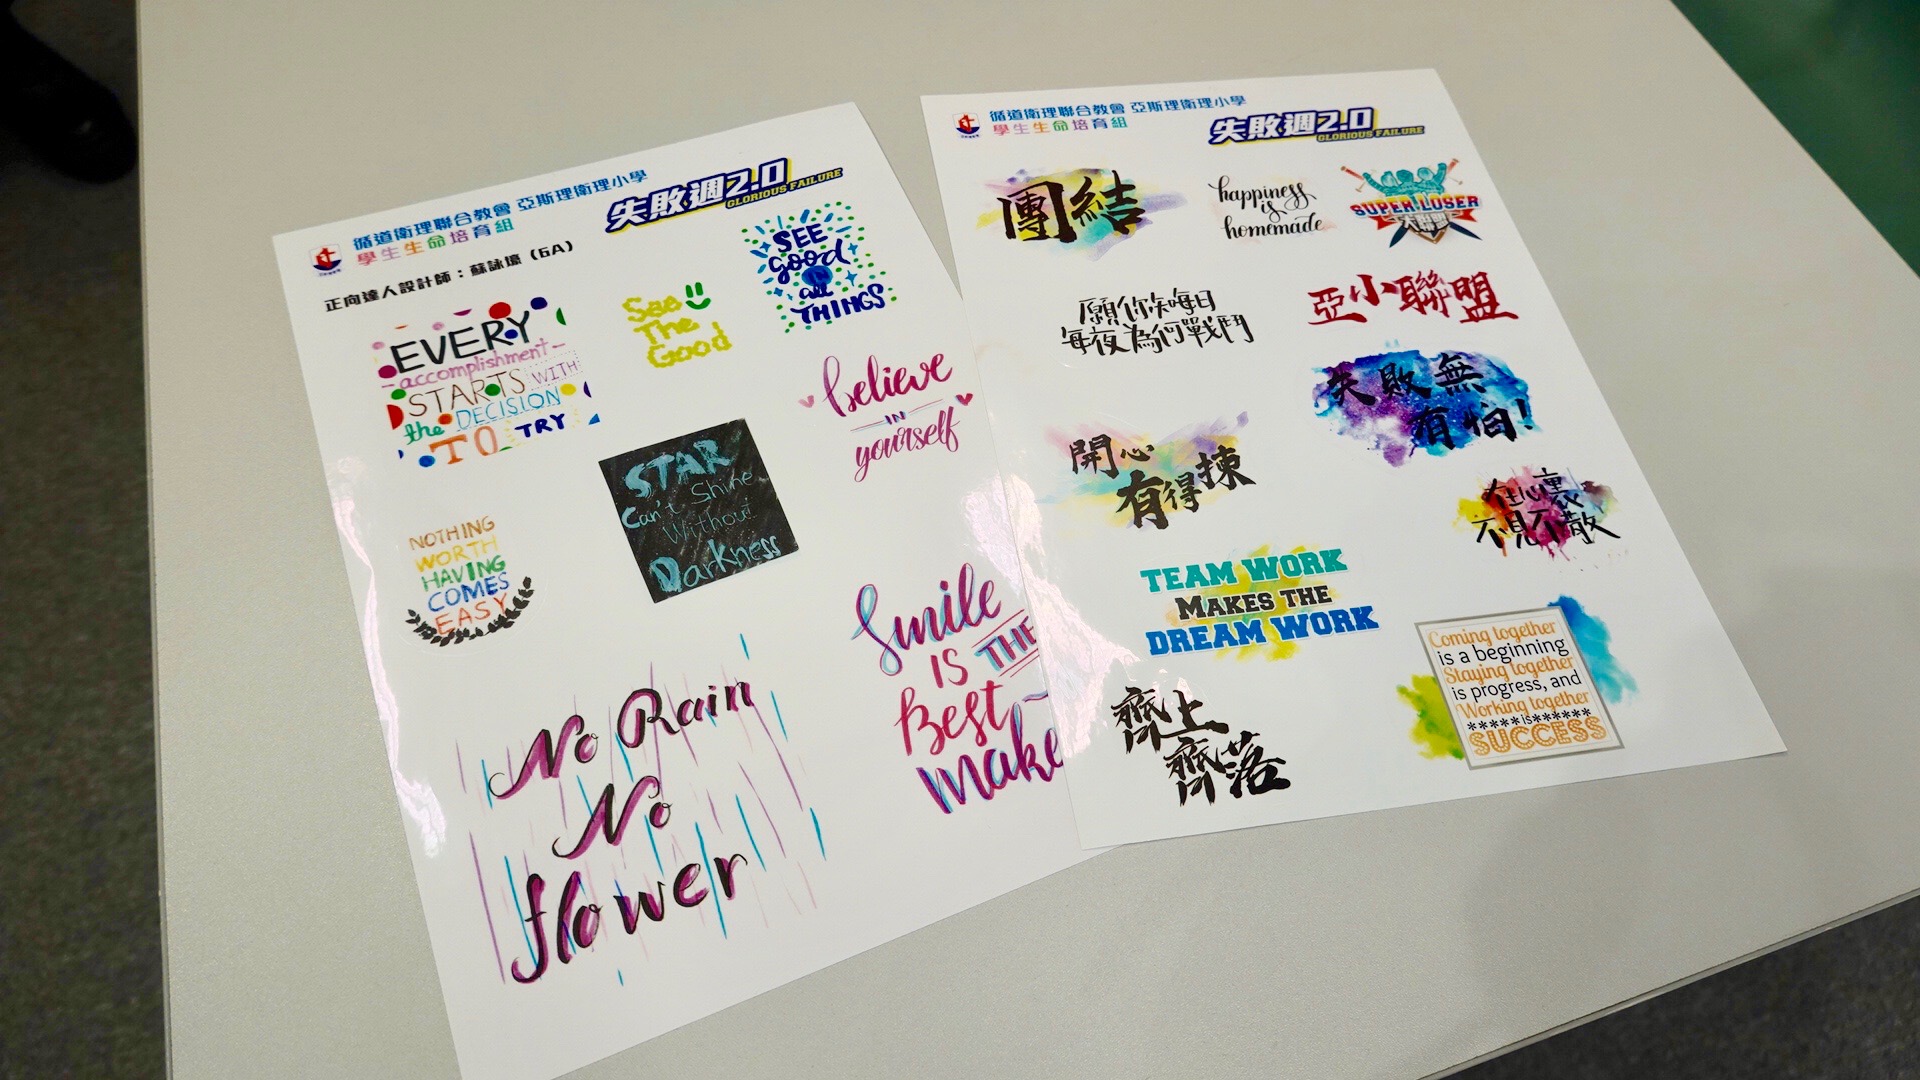 循道衛理聯合教會 亞斯理衛理小學
學生生命培育組
失敗週2.0
GLORIOUS FAILURE
正向達人設計師：蘇詠壕（6A）
EVERY
accomplishment
STARTS WITH
the DECISION
TO TRY
See
The
Good
SEE
good
IN
all
THINGS
believe
IN
yourself
STAR
Can't Shine
Without
Darkness
NOTHING
WORTH
HAVING
COMES
EASY
Smile
IS THE
Best
Make
No Rain
No
flower
循道衛理聯合教會 亞斯理衛理小學
學生生命培育組
失敗週2.0
GLORIOUS FAILURE
團結
happiness
is
homemade
SUPER LOSER
大聯盟
願你笑每日
每夜為何戰鬥
亞小聯盟
失敗無
有怕!
開心
有得揀
在心裏
不見不散
TEAM WORK
MAKES THE
DREAM WORK
齊上
齊落
Coming together
is a beginning
Staying together
is progress, and
Working together
*****is******
SUCCESS